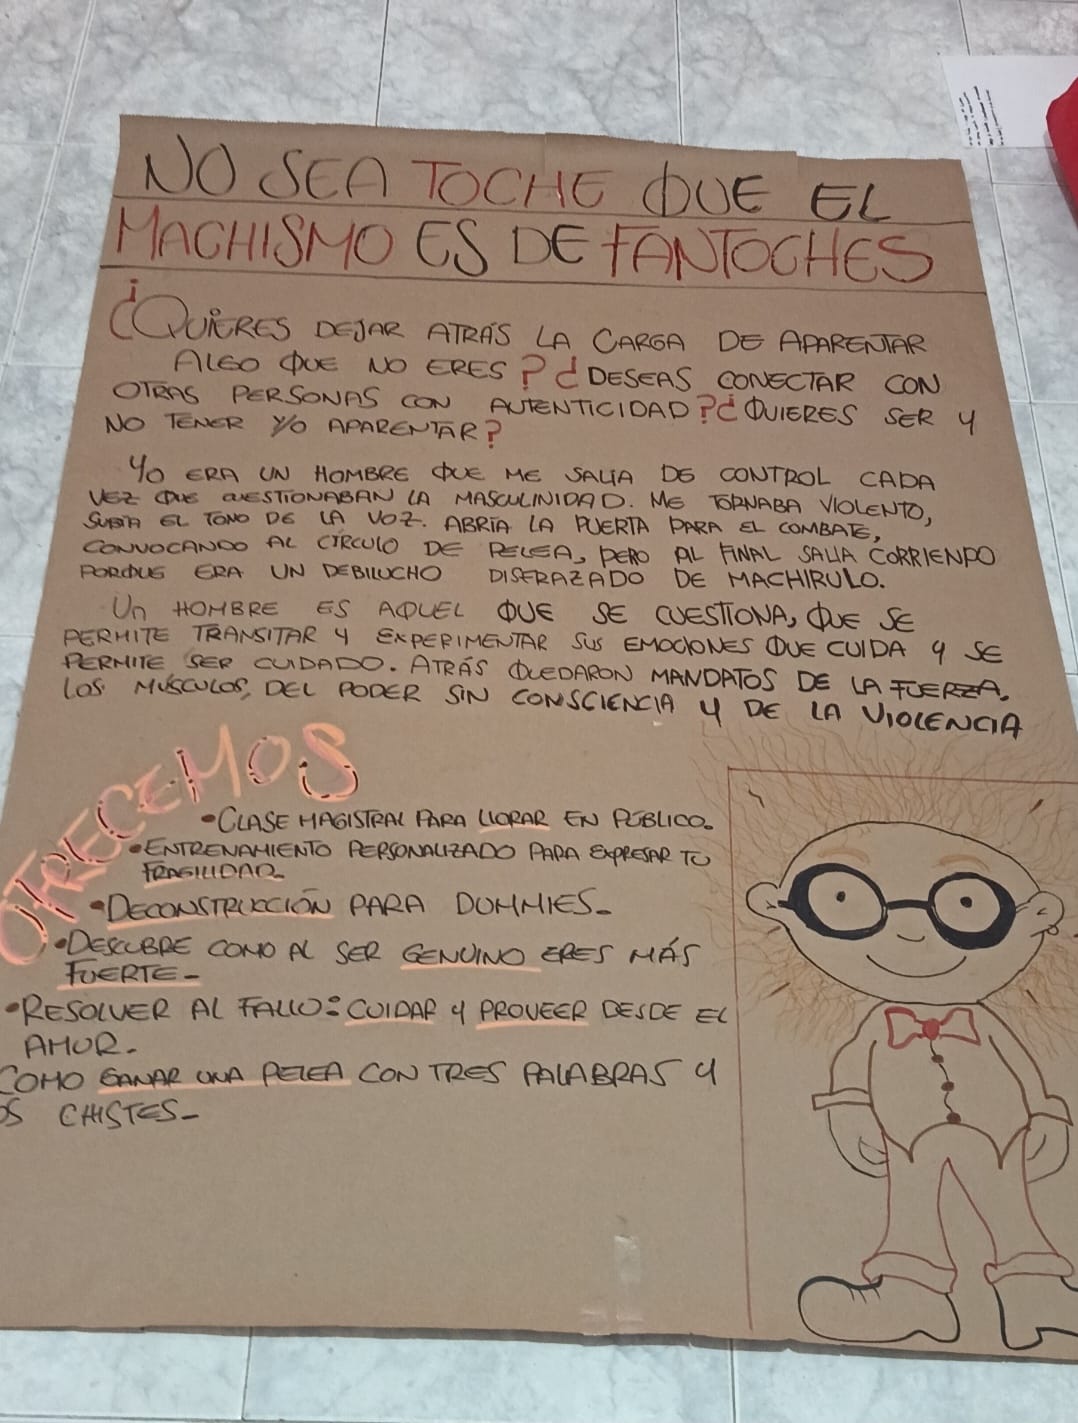 NO SEA TOCHE QUE EL
MACHISMO ES DE FANTOCHES
¿QUIERES DEJAR ATRÁS LA CARGA DE APARENTAR
ALGO QUE NO ERES? ¿DESEAS CONECTAR CON
OTRAS PERSONAS CON AUTENTICIDAD? ¿QUIERES SER Y
NO TENER Y/O APARENTAR?
YO ERA UN HOMBRE QUE ME SALIA DE CONTROL CADA
VEZ QUE CUESTIONABAN LA MASCULINIDAD. ME TORNABA VIOLENTO,
SUBÍA EL TONO DE LA VOZ. ABRÍA LA PUERTA PARA EL COMBATE,
CONVOCANDO AL CÍRCULO DE PELEA, PERO AL FINAL SALIA CORRIENDO
PORQUE ERA UN DEBILUCHO DISFRAZADO DE MACHIRULO.
UN HOMBRE ES AQUEL QUE SE CUESTIONA, QUE SE
PERMITE TRANSITAR Y EXPERIMENTAR SUS EMOCIONES QUE CUIDA Y SE
PERMITE SER CUIDADO. ATRÁS QUEDARON MANDATOS DE LA FUERZA,
LOS MÚSCULOS, DEL PODER SIN CONSCIENCIA Y DE LA VIOLENCIA
OFRECEMOS
• CLASE MAGISTRAL PARA LLORAR EN PÚBLICO.
• ENTRENAMIENTO PERSONALIZADO PARA EXPRESAR TU
FRAGILIDAD
• DECONSTRUCCIÓN PARA DUMMIES.
• DESCUBRE COMO AL SER GENUINO ERES MÁS
FUERTE-
• RESOLVER AL FALLO: CUIDAR Y PROVEER DESDE EL
AMOR.
COMO GANAR UNA PELEA CON TRES PALABRAS Y
OS CHISTES-